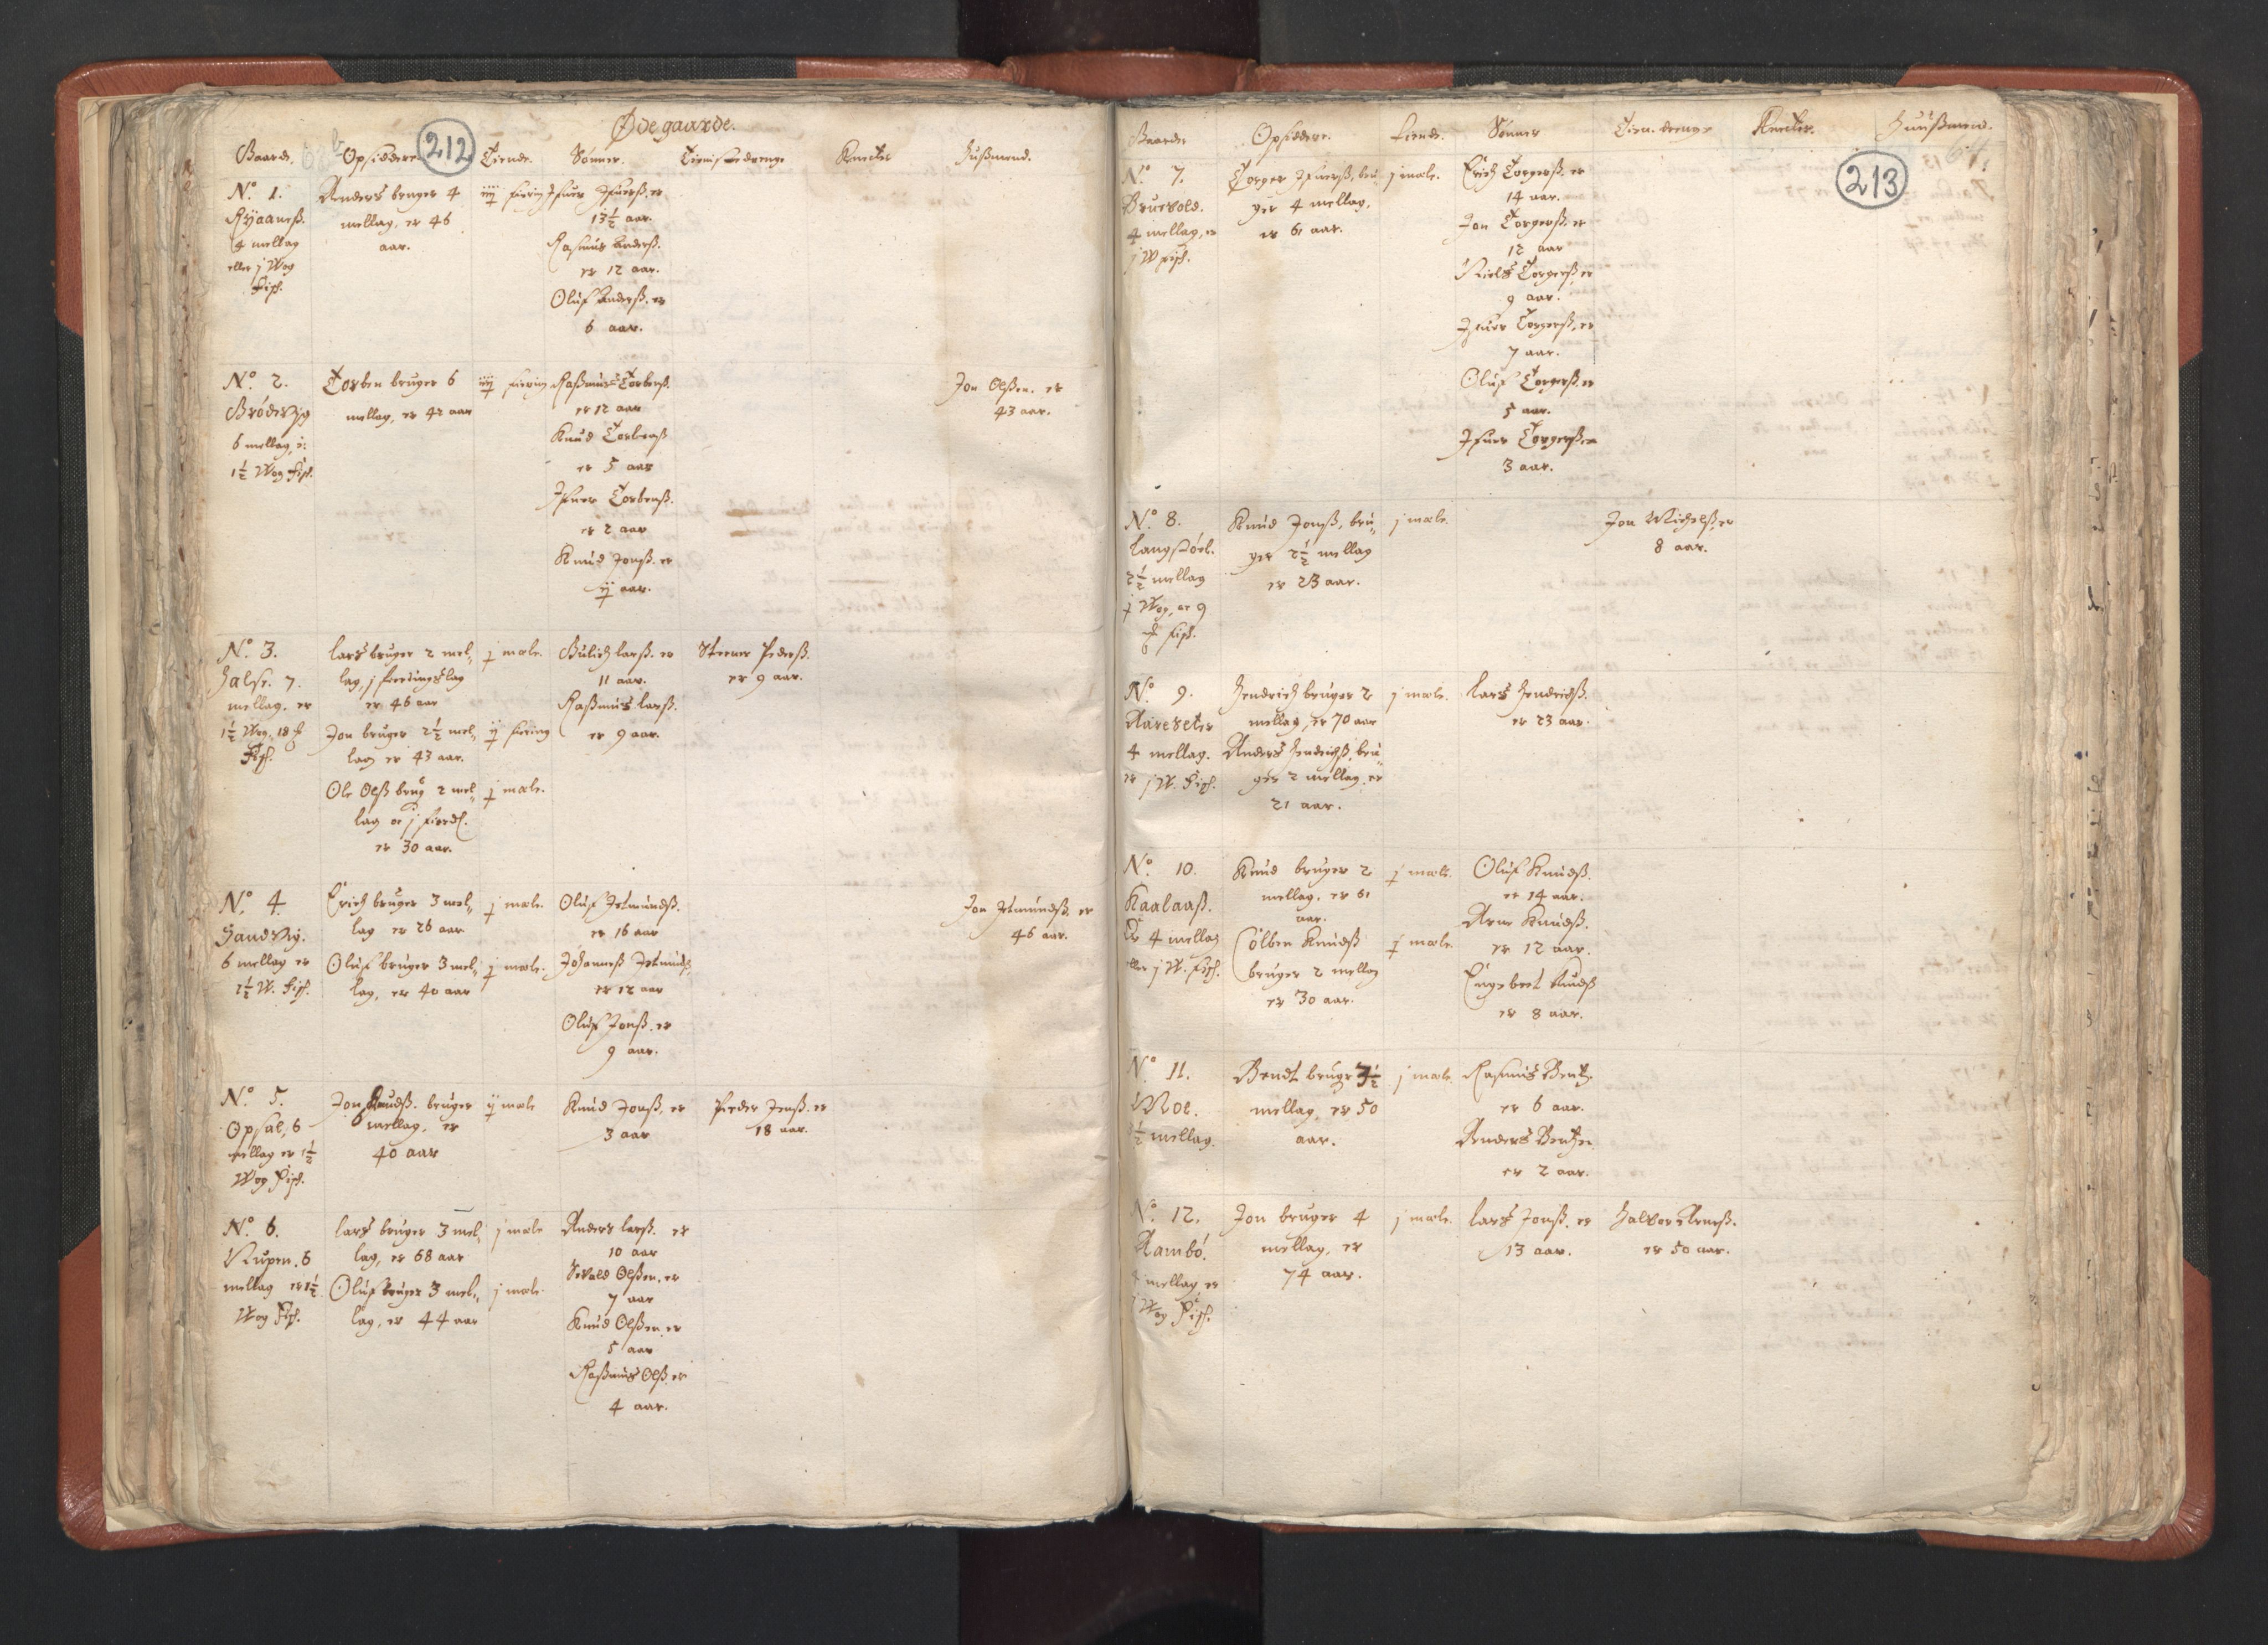 Øde gaarde.
Gaarde. Opsiddere 212 Tiende. Sønner. Tienistedrenge Knecter Husmend.
No. 1.
Ryaaneß.
4 mellag
eller j Wog
Fisk.
Anders bruger 4
mellag, er 46
aar.
iiij fiering
Ifuer Ifuerß. er
13½ aar.
Rasmus Anderß.
er 12 aar.
Oluf Anderß. er
6 aar.
No. 2.
Brödervig
6 mellag, i:
1½ Wog Fisk.
Torben bruger 6
mellag, er 42 aar
iiij fiering
Raßmus Torbenß.
er 12 aar
Knud Torbenß
er 5 aar
Ifuer Torbenß.
er 2 aar
Knud Jonß. er
ij aar.
Jon Olßen. er
43 aar.
No. 3.
Halse. 7.
mellag. er
1½ Wog. 18
Fisk.
Lars bruger 2 mel„
lag, j fierdingslag
er 46 aar
j mæle.
Jon bruger 2½ mel„
lag er 43 aar.
ij fiering
Ole Olß brug 2 mel„
lag oc j fierdl.
er 30 aar.
j mæle.
Gulich Larß. er
11 aar.
Raßmus Larß.
er 9 aar.
Steener Pederß.
er 9 aar.
No. 4.
Sandvig.
6 mellag er
1½ W. Fisk.
Erich bruger 3 mel„
lag er 26 aar
j mæle.
Oluf bruger 3 mel„
lag, er 40 aar
j mæle.
Oluf Jetmundß.
er 16 aar
Johanneß Jetmundß.
er 12 aar
Oluf Jonß. er
9 aar.
Jon Jetmundß. er
46 aar.
No. 5.
Opsal, 6
mellag er 1½
Wog Fisk.
Jon Knudß. bruger
6 mellag, er
40 aar
ij mæle
Knud Jonß. er
3 aar
Peder Jenß. er
18 aar.
No. 6.
Nupen. 6
mellag er 1½
Wog Fisk.
Lars bruger 3 mel„
lag, er 68 aar
j mæle
Oluf bruger 3 mel„
lag, er 44 aar
j mæle.
Anders Larß. er
10 aar
Sevald Olßen. er
7 aar
Knud Olßen. er
5 aar
Raßmus Olß. er
4 aar.
Gaarde Opsiddere. Tiende. Sønner Tien. drenge Knecter. Huußmend.
213
No. 7.
Bruevold.
4 mellag, er
j W fisk.
Torger Ifuerß. bru„
ger 4 mellag,
er 61 aar.
j mæle.
Erich Torgerß. er
14 aar.
Jon Torgerß. er
12 aar
Niels Torgerß. er
9 aar.
Ifuer Torgerß. er
7 aar.
Oluf Torgerß. er
5 aar.
Ifuer Torgerß er
3 aar.
No. 8.
2½ mellag
j Wog, oc 9
fisk.
Knud Jonß, bru„
ger 2½ mellag
er 23 aar.
j mæle.
Jon Michelß. er
8 aar.
No. 9.
Aareseter
4 mellag.
er j W. Fisk.
Hendrich bruger 2
mellag, er 70 aar
Anders Hendrichß. bru„
ger 2 mellag. er
21 aar.
j mæle.
Lars Hendrichß.
er 23 aar.
No. 10.
Kaalaaß.
Er 4 mellag
eller j W. Fisk.
Knud bruger 2
mellag, er 61
aar.
j mæle.
Colben Knudß
bruger 2 mellag
er 30 aar.
j mæle.
Oluf Knudß.
er 14 aar.
Arne Knudß.
er 12 aar.
Engebret Knudß
er 8 aar.
No. 11.
Moe.
½ mellag.
Bendt bruger 3½
mellag, er 50
aar.
j mæle.
Rasmus Bentz.
er 6 aar.
Anders Bentzen
er 2 aar.
No. 12.
Rambö.
4 mellag er
j Wog Fisk.
Jon bruger 4
mellag, er
74 aar.
j mæle.
Lars Jonß. er
13 aar.
Halvor Arneß.
er 50 aar.